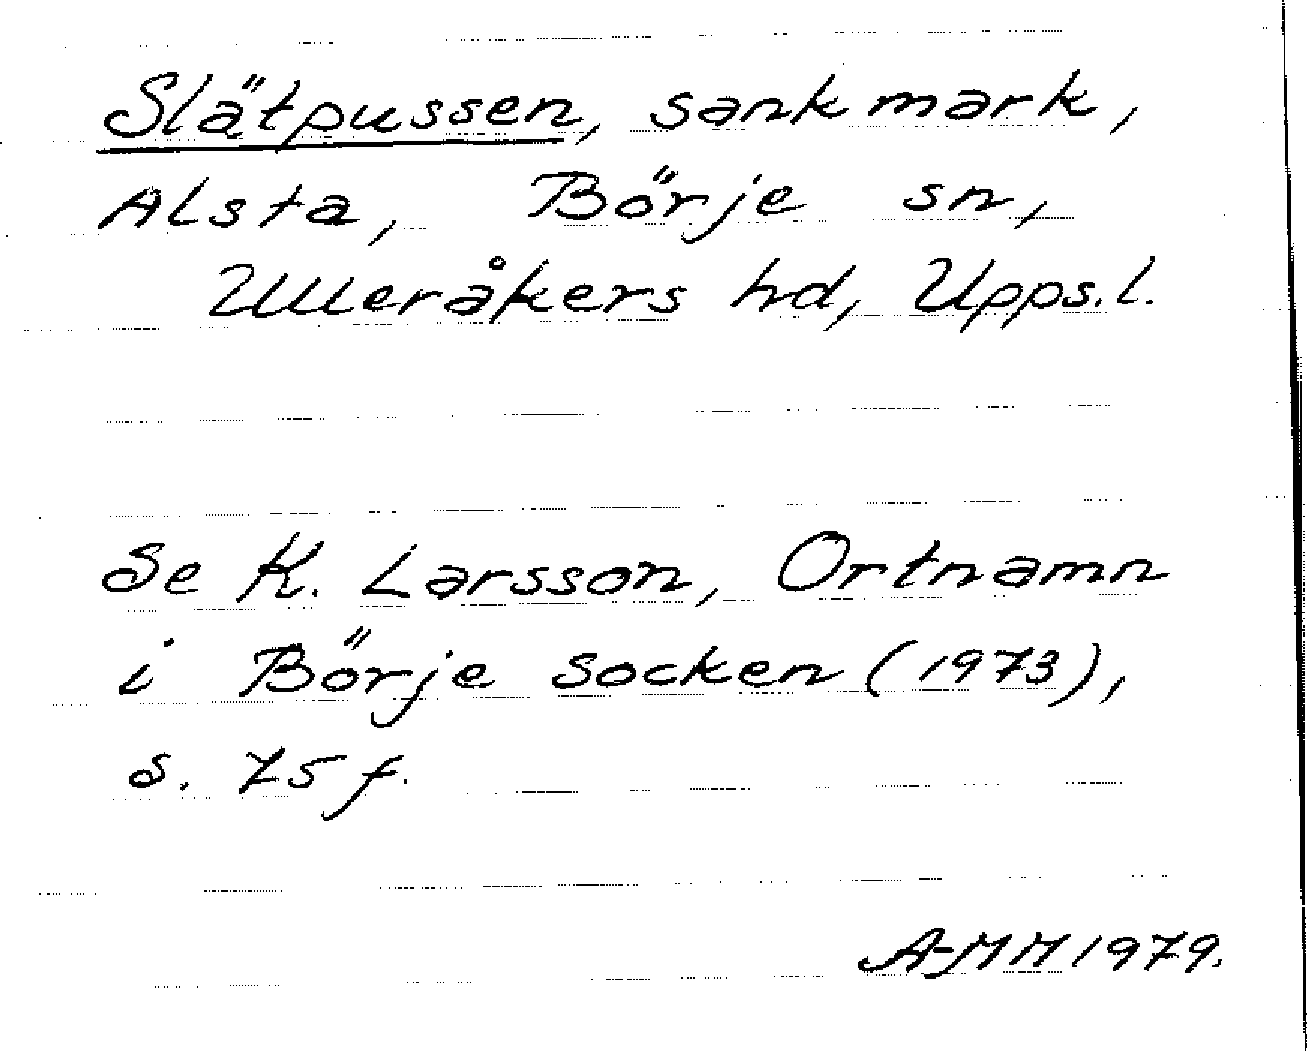 Slätpussen, sankmark,
Alsta, Börje sn,
Ulleråkers hd, Upps.l.
Se K. Larsson, Ortnamn
i Börje socken (1973),
s. 75 f.
A-MM 1979.